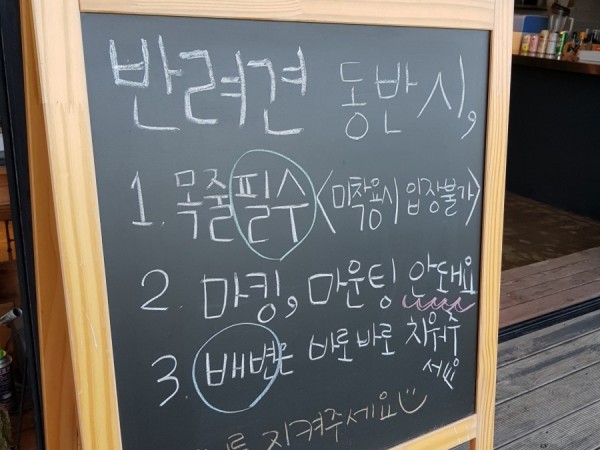 반려견 동반시,
1. 목줄필수<미착용시 입장불가>
2. 마킹, 마운팅 안돼요
3. 배변은 바로바로 치워주세요
를 지켜주세요